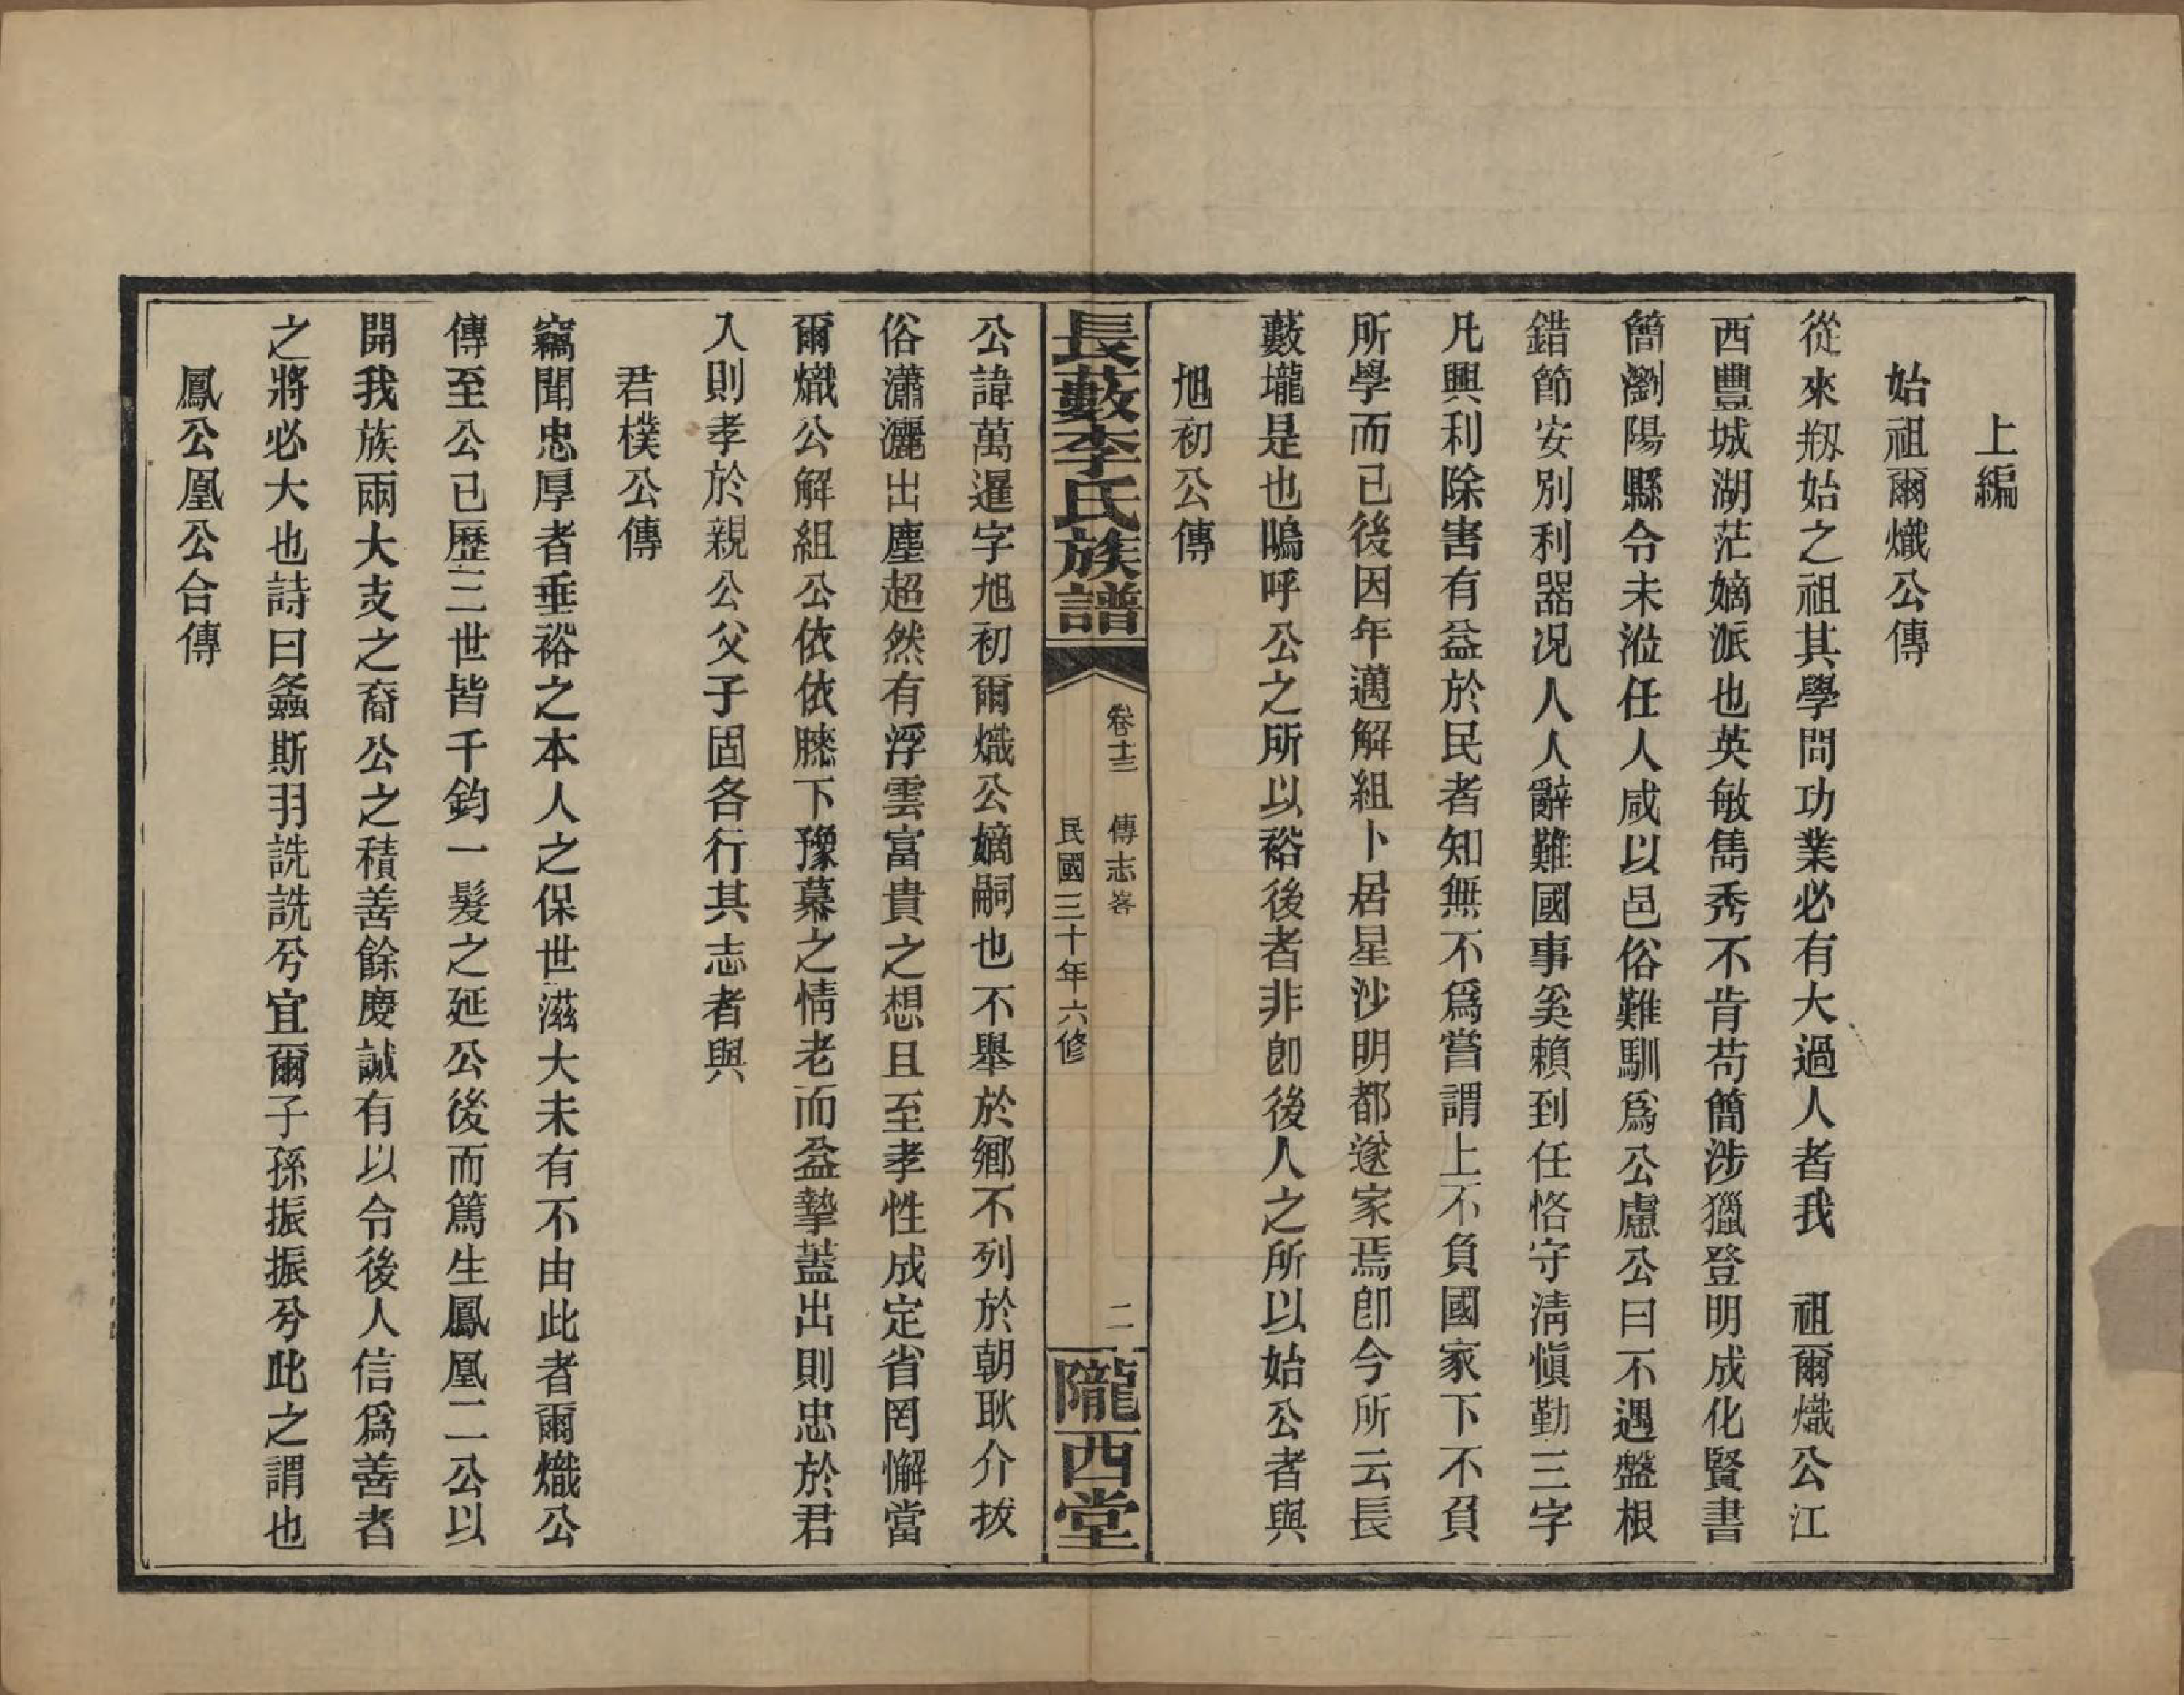 上編
始祖爾熾公傳
從來剏始之祖其學問功業必有大過人者我　祖爾熾公江
西豐城湖茫嫡派也英敏雋秀不肯苟簡涉獵登明成化賢書
簡瀏陽縣令未涖任人咸以邑俗難馴爲公慮公曰不遇盤根
錯節安別利器况人人辭難國事奚賴到任恪守淸愼勤三字
凡興利除害有益於民者知無不爲嘗謂上不負國家下不負
所學而已後因年邁解組卜居星沙明都遂家焉卽今所云長
藪壠是也嗚呼公之所以裕後者非卽後人之所以始公者與
旭初公傳
長藪李氏族譜
卷十三　傳志畧
民國三十年六修
二
隴西堂
公諱萬暹字旭初爾熾公嫡嗣也不舉於鄉不列於朝耿介拔
俗瀟灑出塵超然有浮雲富貴之想且至孝性成定省罔懈當
爾熾公解組公依依膝下豫慕之情老而益摯蓋出則忠於君
入則孝於親公父子固各行其志者與
君樸公傳
竊聞忠厚者垂裕之本人之保世滋大未有不由此者爾熾公
傳至公已歷三世皆千鈞一髮之延公後而篤生鳳凰二公以
開我族兩大支之裔公之積善餘慶誠有以令後人信爲善者
之將必大也詩曰螽斯羽詵詵兮宜爾子孫振振兮此之謂也
鳳公凰公合傳